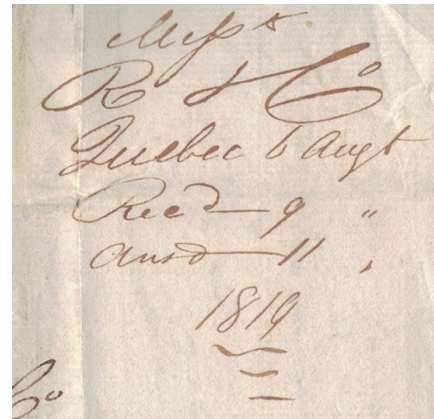 Messrs
R & Co
Quebec 6 Augt
Recd 9 "
Ansd 11 "
1819
Co